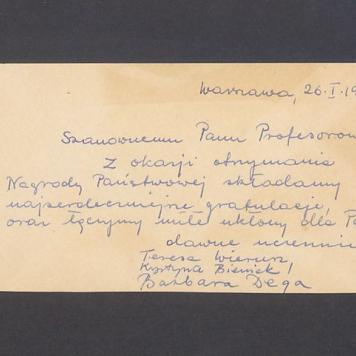 Warszawa, 26.I.19
Szanownemu Panu Profesorow
Z okazji otrzymania
Nagrody Państwowej składamy
najserdeczniejsze gratulacje,
oraz łączymy miłe ukłony dla Pa
dawne uczennic
Teresa Wierusz,
Krystyna Bieniek,
Barbara Dega